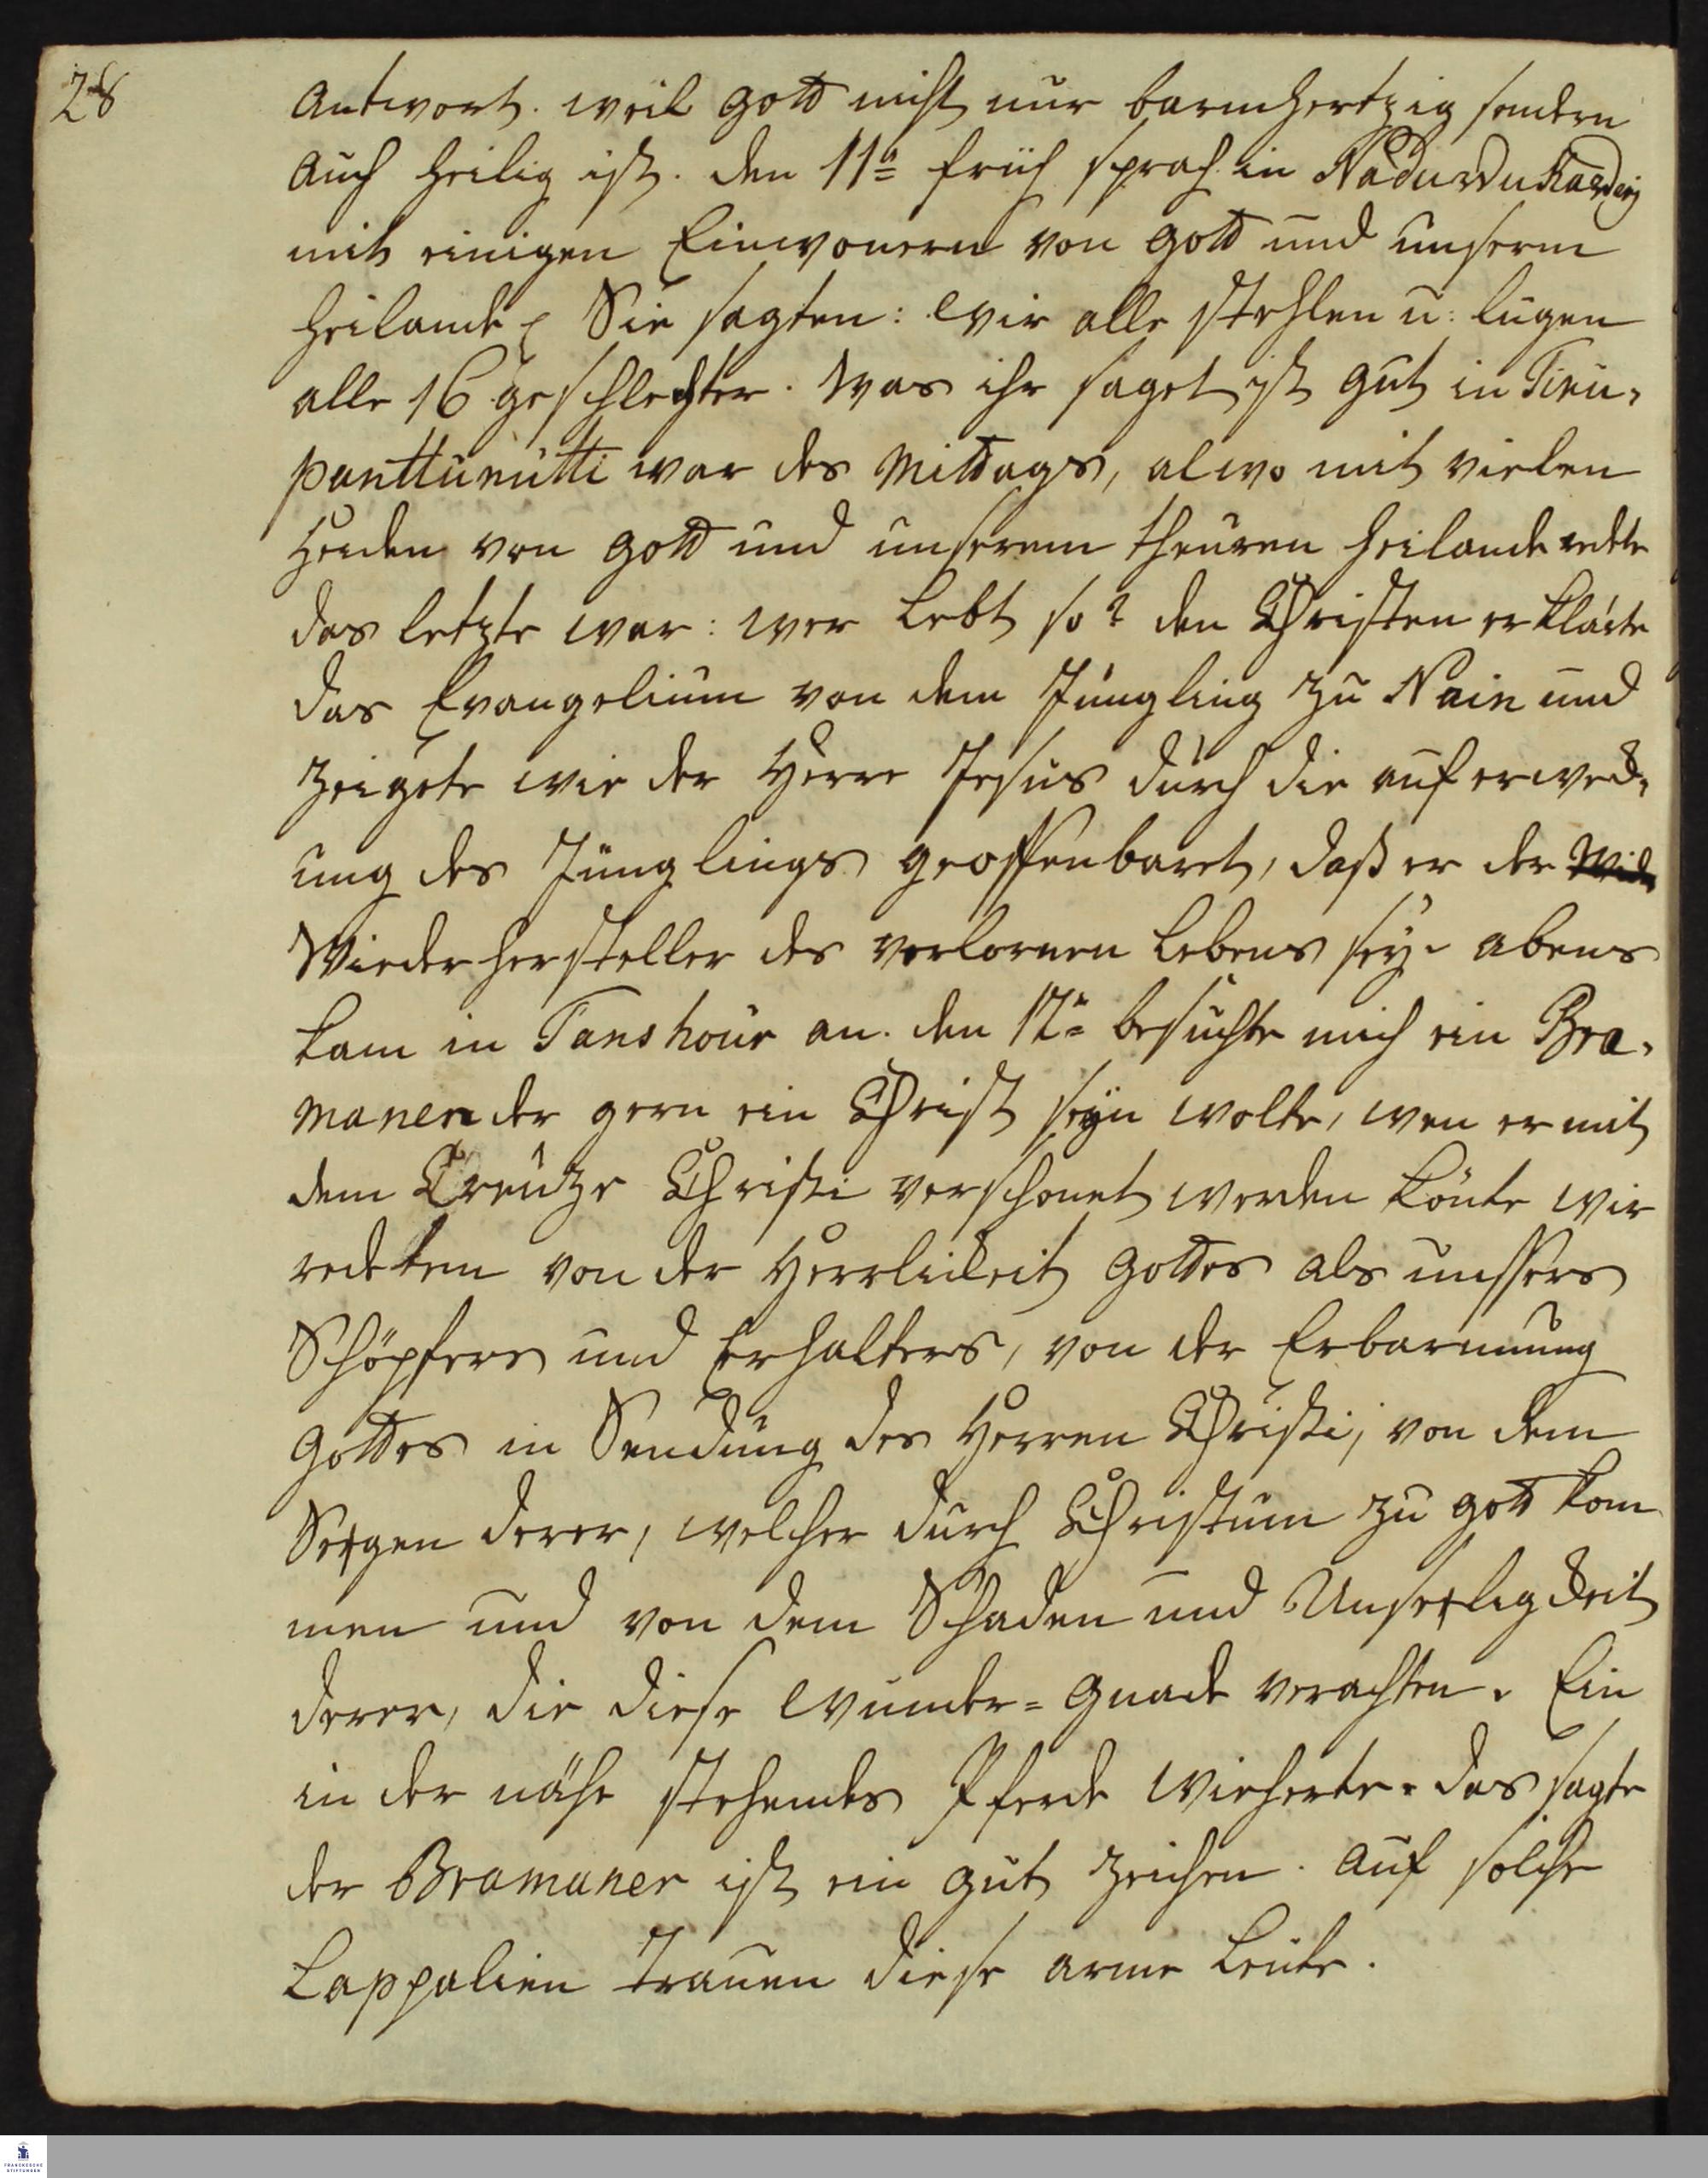 28
Antwort. weil Gott nicht nur barmhertzig sondern
Auch heilig ist. den 11n früh sprach in
mit einigen Einwonern von Gott und unserm
Heilande Sie sagten: Wir alle stehlen u: lügen
alle 16 geschlechter. Was ihr saget ist gut in Tiru-
panttu war des Mittags, alwo mit vielen
Heiden von Gott und unserem theuren Heilande redete
das letzte war: wer Lebt so? den Christen erklärte
das Evangelium von dem Jüngling zu Nain und
Zeigete wie der Herre Jesus durch die auferweck-
ung des Jünglings geoffenbaret, daß er der Wide
Wiederhersteller des verlornen Lebens sey. abens
kam in Tanshour an. den 12n besuchte mich ein Bra-
maner der gern ein Christ seyn wolte, wen er mit
dem Creutze Christi verschonet werden könte wir
redeten von der Herrlickeit Gottes als unssers
Schöpfers und Erhalters, von der Erbarmung
Gottes in Sendung des Herren Christi, von dem
Seegen derer, welcher durch Christum zu Gott kom
men und von dem Schaden und Unseeligkeit
derer, die diese Wunder=Gnade verachten. Ein
in der nähe stehendes Pferde Wieherte. das sagte
der Bramaner ist ein gut Zeichen. Auf solche
Lappalien trauen diese arme Leute.
FRANCKESCHE
STIFTUNGEN